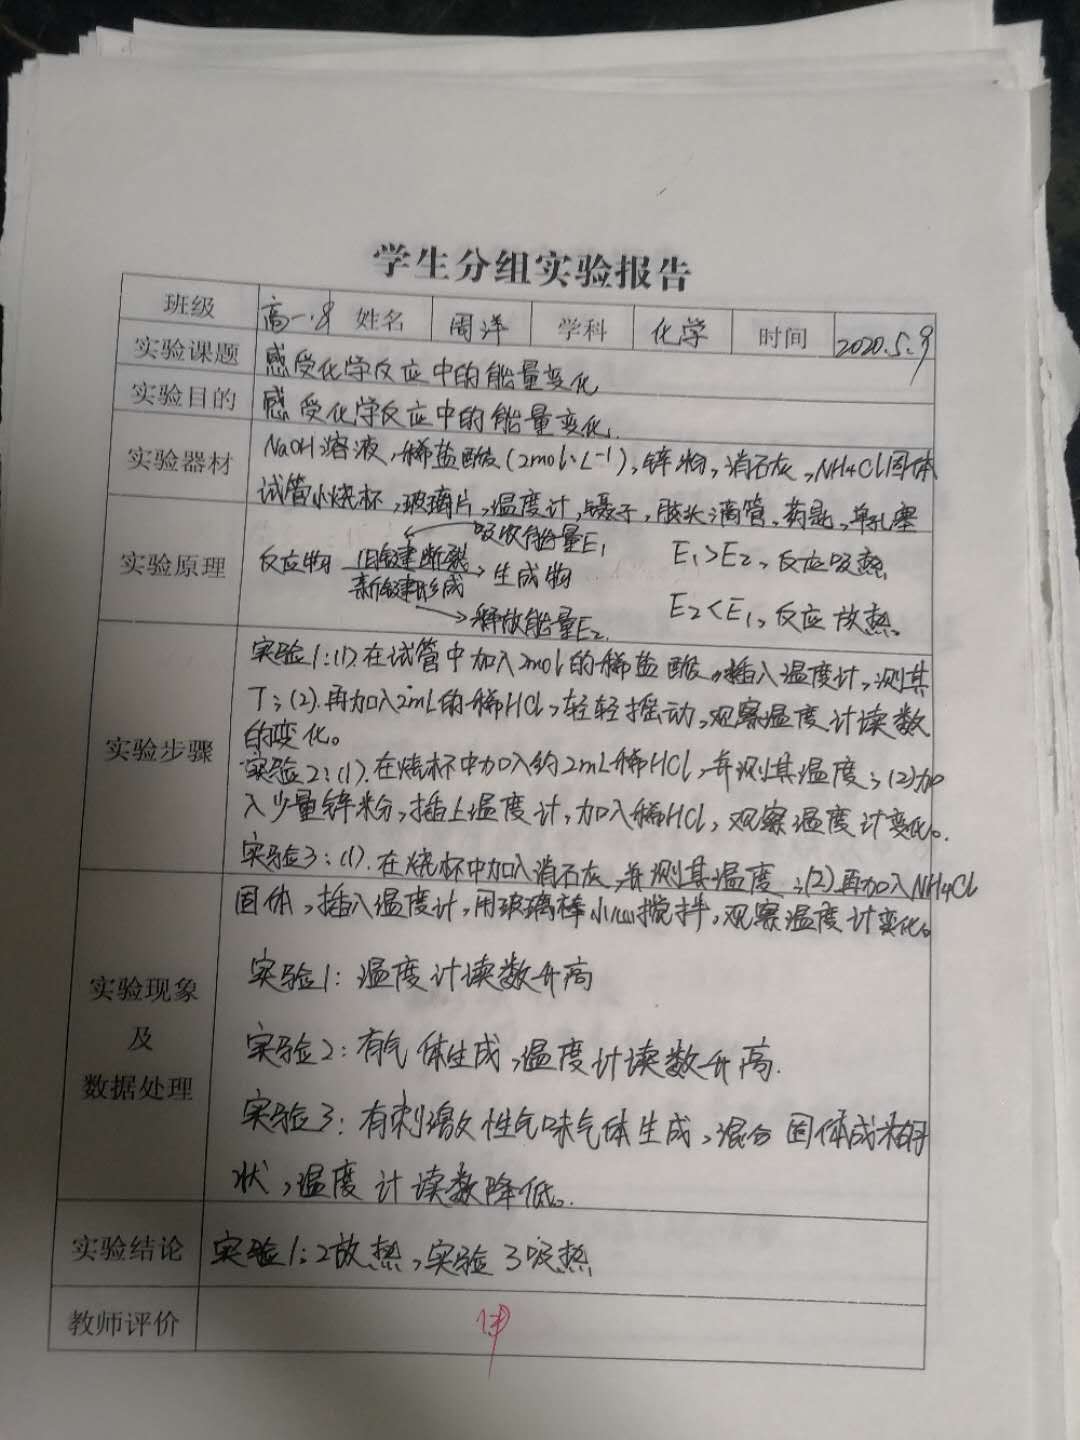 学生分组实验报告
班级 高一.8 姓名 周洋 学科 化学 时间 2020.5.9
实验课题 感受化学反应中的能量变化
实验目的 感受化学反应中的能量变化.
实验器材 NaOH溶液,稀盐酸(2mol·L⁻¹),锌粉,消石灰,NH4Cl固体
试管小烧杯,玻璃片,温度计,镊子,胶头滴管,药匙,单孔塞
吸收能量E1
实验原理 反应物 旧键断裂 新键形成 → 生成物 E1>E2,反应吸热
释放能量E2. E2<E1,反应放热.
实验1:(1).在试管中加入2mol的稀盐酸,插入温度计,测其
T;(2).再加入2mL的稀HCl,轻轻摇动,观察温度计读数
的变化。
实验步骤
实验2:(1).在烧杯中加入约2mL稀HCl,并测其温度;(2)加
入少量锌粉,插上温度计,加入稀HCl,观察温度计变化。
实验3:(1).在烧杯中加入消石灰,并测其温度;(2)再加入NH4Cl
固体,插入温度计,用玻璃棒小心搅拌,观察温度计变化。
实验现象
及
数据处理
实验1:温度计读数升高
实验2:有气体生成,温度计读数升高.
实验3:有刺激性气味气体生成,混合固体成糊
状,温度计读数降低。
实验结论 实验1:2放热,实验3吸热
教师评价